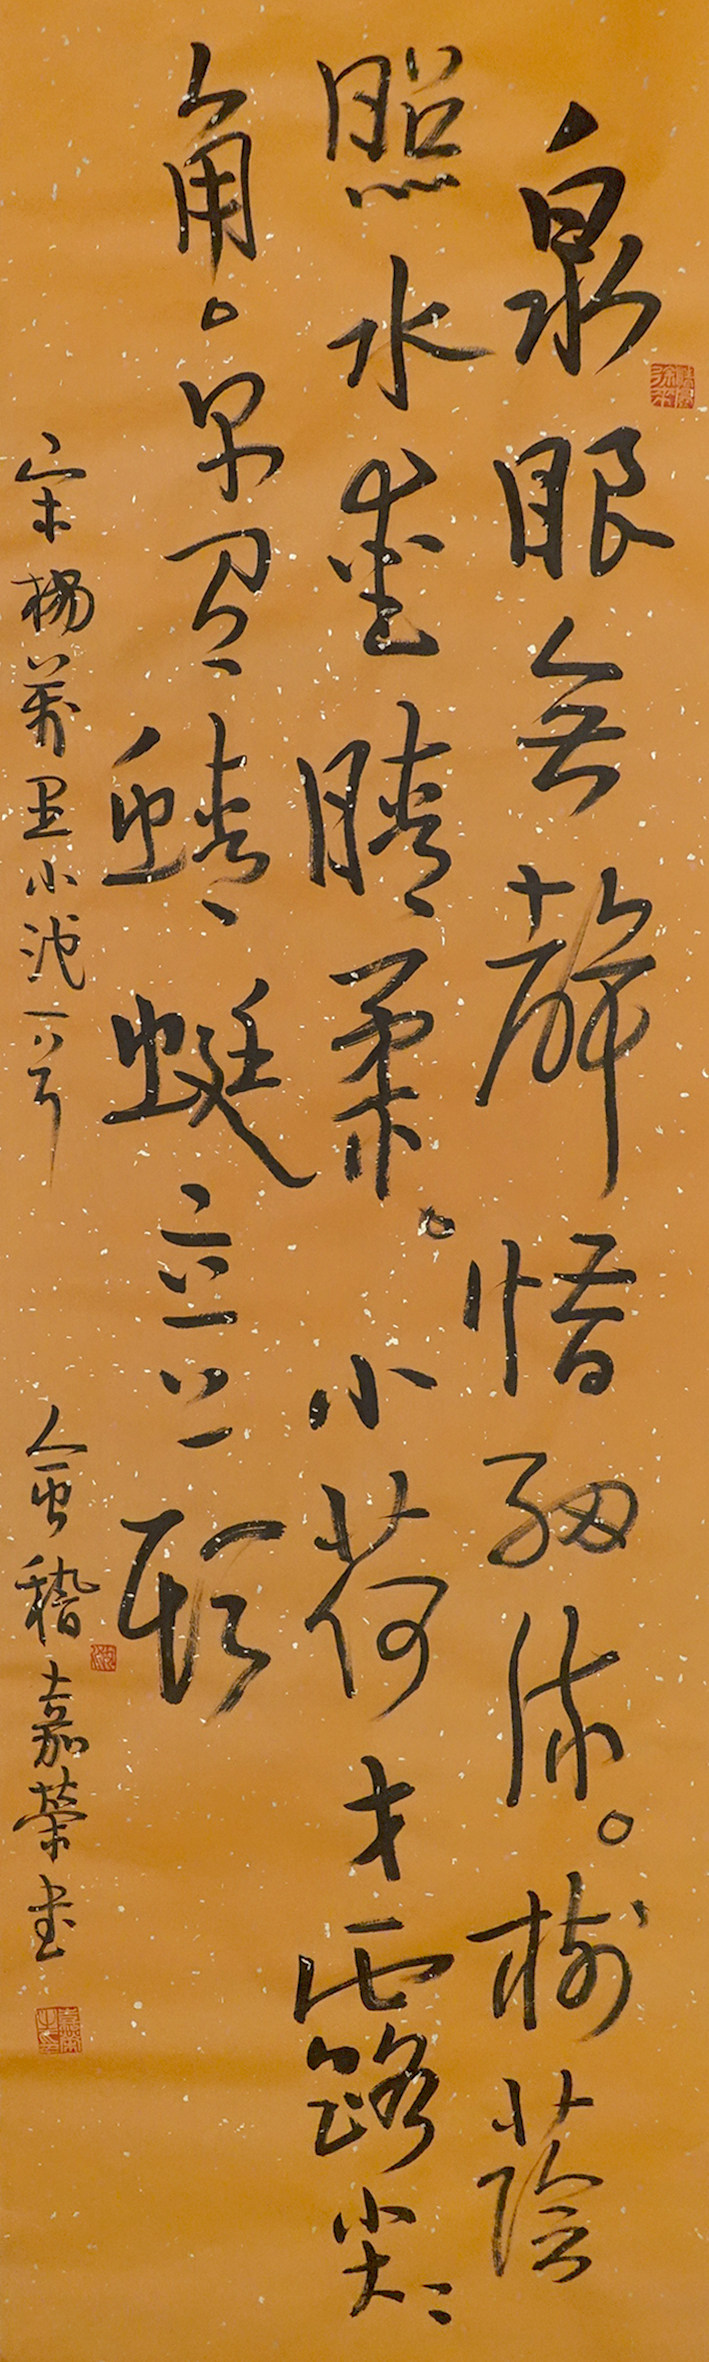 泉眼無聲惜細流。樹蔭
照水愛晴柔。小荷才露尖々
角。早有蜻蜓立上頭
宋楊萬里小池一首 會稽嘉榮書